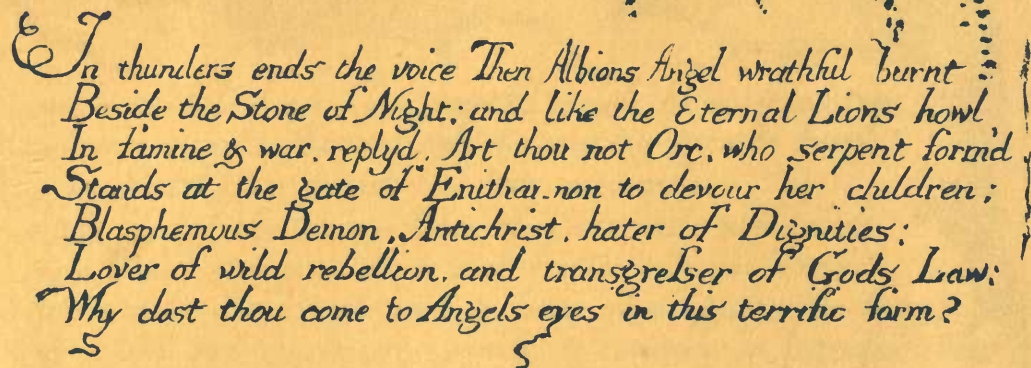 In thunders ends the voice Then Albions Angel wrathful burnt
Beside the Stone of Night; and like the Eternal Lions howl
In famine & war, replyd. Art thou not Orc, who serpent form'd
Stands at the gate of Enitharmon to devour her children;
Blasphemous Demon, Antichrist, hater of Dignities;
Lover of wild rebellion, and transgreſser of Gods Law;
Why dost thou come to Angels eyes in this terrific form?